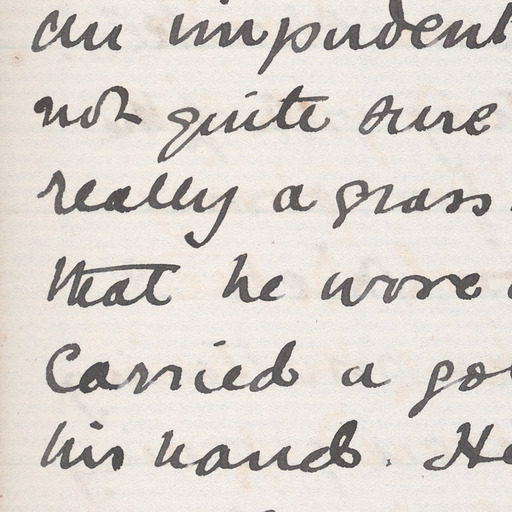 an impudent
not quite sure
really a grass
that he wore
Carried a gol
his hand. He